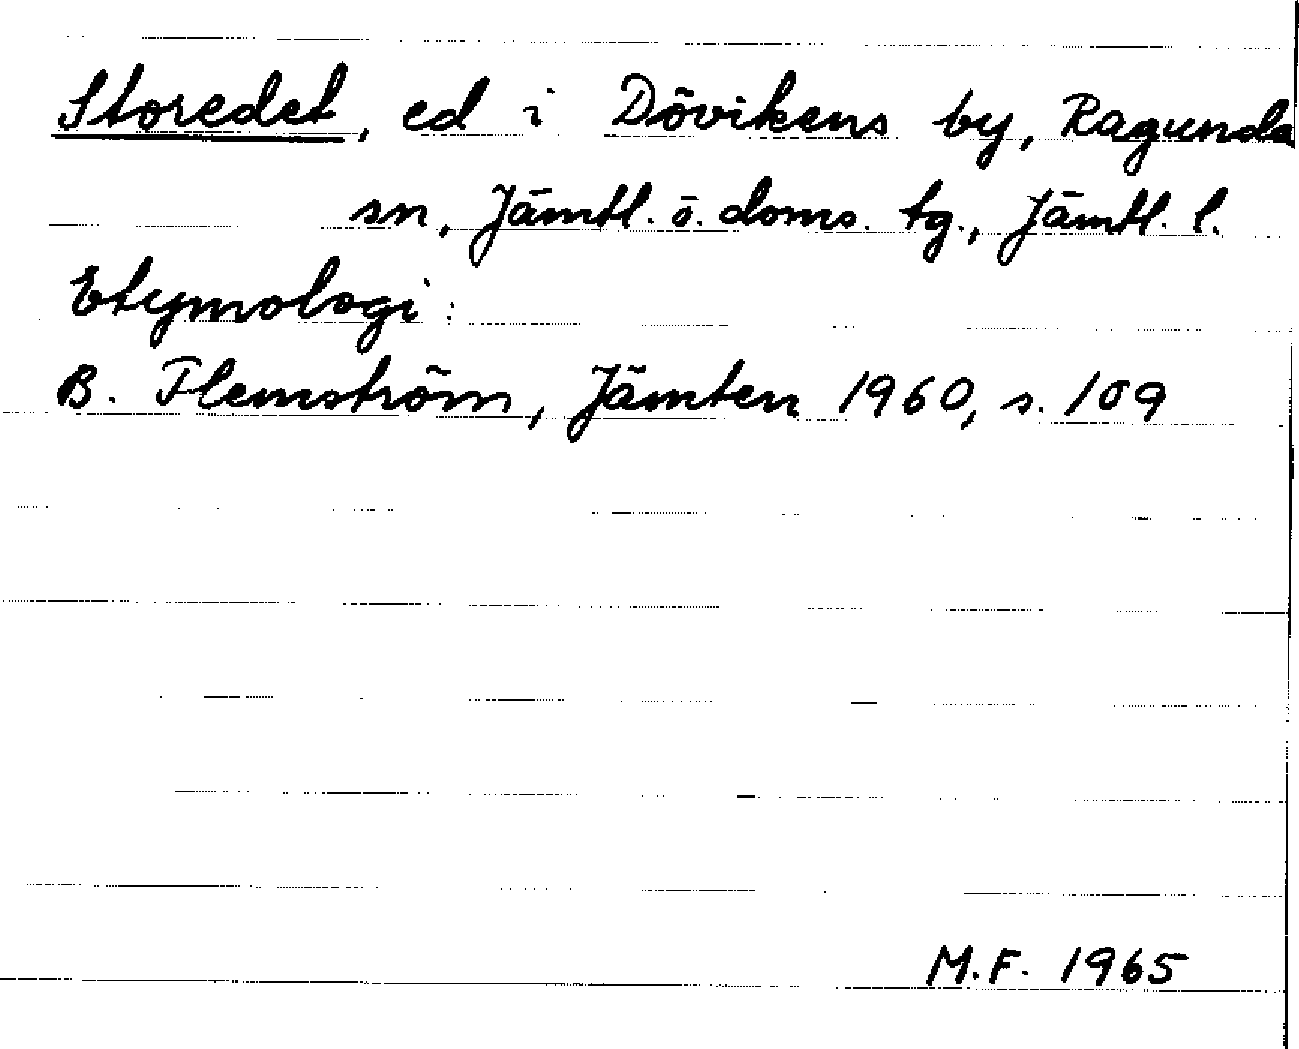 Storedet, ed i Dövikens by, Ragunda
sn, Jämtl. ö. doms. tg., Jämtl. l.
Etymologi:
B. Flemström, Jämten 1960, s. 109
M.F. 1965